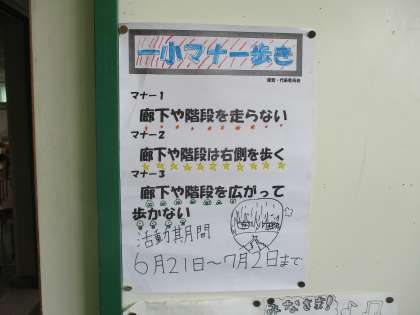 一小マナー歩き
運営・代表委員会
マナー1
廊下や階段を走らない
マナー2
廊下や階段は右側を歩く
マナー3
廊下や階段を広がって
歩かない
活動期間
6月21日〜7月2日まで
みなさま!